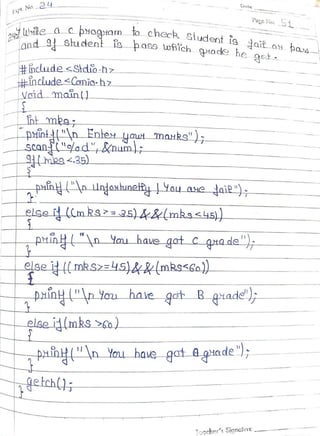 Expt. No. 24
Date
Page No. 51
Write a c program to check student is fail or pass
and If student is pass which grade he got.
#include <Stdio.h>
#include <Conio.h>
Void main()
{
int mks;
printf("\n Enter your marks");
scanf("%d", &num);
if(mks<35)
{
printf("\n Unfortunetly! You are fail");
}
else if ((mks>=35) && (mks<45))
{
printf("\n You have got C grade");
}
else if ((mks>=45) && (mks<60))
{
printf("\n You have got B grade");
}
else if(mks >60)
{
printf("\n You have got A grade");
}
getch();
}
Teacher's Signature